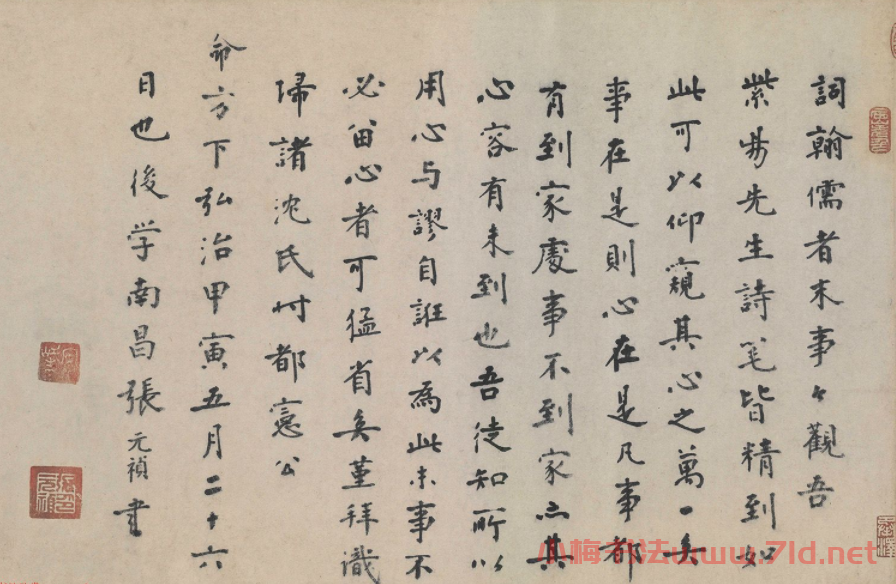 詞翰儒者末事々觀吾
紫陽先生詩笔皆精到如
此可以仰窺其心之萬一矣
事在是則心在是凡事都
有到家處事不到家亦其
心容有未到也吾徒知所以
用心与謬自誑以為此末事不
必留心者可猛省矣菫拜識
歸諸沈氏時都憲公
命方下弘治甲寅五月二十六
日也後学南昌張元禎書
小梅书法www.7ld.net